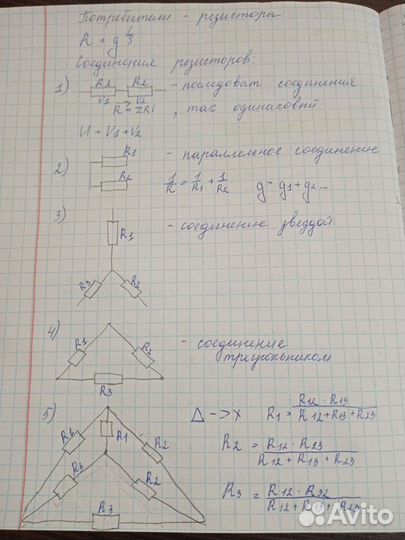 Потребители - резисторы
R = g
Соединения резисторов:
1) R1 R2 - последоват соединения
V1 V2 , ток одинаковый
R = ΣRi
U = V1 + V2
2) R1 - параллельное соединение
R2 1/R = 1/R1 + 1/R2 g = g1 + g2 ...
3) - соединение звездой
R1
R3 R2
4) - соединение
треугольником
R1 R2
R3
5) Δ -> Y R1 = R12 · R13 / R12 + R13 + R23
R1 R1 R2
R2 = R12 · R23 / R12 + R13 + R23
R3 R2
R3 = R12 · R32 / R12 + R23
R3
Avito